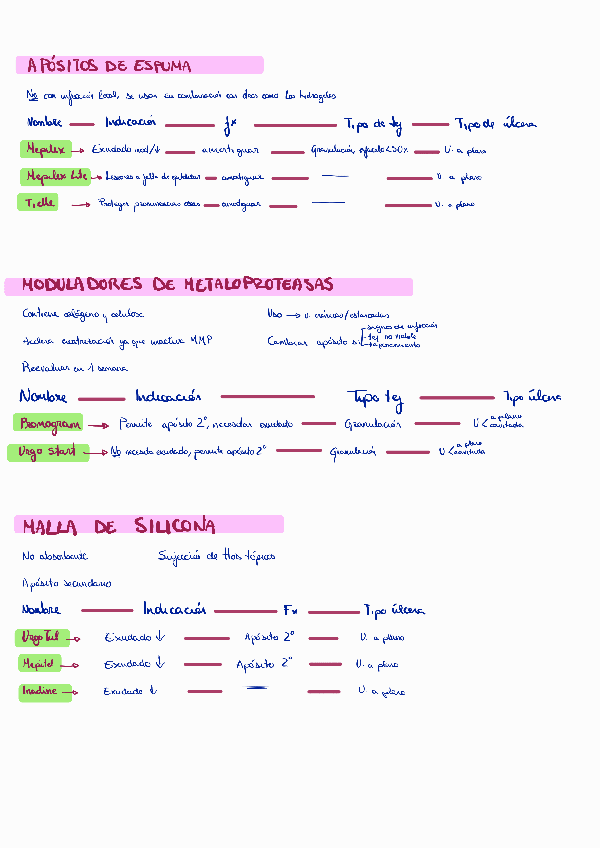 APÓSITOS DE ESPUMA
No con infección local, se usan en combinación con otros como los hidrogeles
Nombre Indicación fx Tipo de tej Tipo de úlcera
Mepilex → Exudado mod/↓ amortiguar Granulación, esfacelo <50% U. a plano
Mepilex Lite → Lesiones a falta de epitelizar amortiguar U. a plano
Tielle → Proteger prominencias óseas amortiguar U. a plano
MODULADORES DE METALOPROTEASAS
Contiene colágeno y celulosa Uso → U. crónicas/estancadas
Acelera cicatrización ya que inactiva MMP Cambiar apósito si signos de infección
tej no viable
Reevaluar en 1 semana
Nombre Indicación Tipo tej Tipo úlcera
Promogram → Permite apósito 2º, necesitan exudado Granulación U < a plano cavitada
Urgo Start → No necesita exudado, permite apósito 2º Granulación U < a plano cavitada
MALLA DE SILICONA
No absorbente Sujeción de ttos tópicos
Apósito secundario
Nombre Indicación Fx Tipo úlcera
UrgoTul → Exudado ↓ Apósito 2º U. a plano
Mepitel → Exudado ↓ Apósito 2º U. a plano
Inadine → Exudado ↓ U. a plano